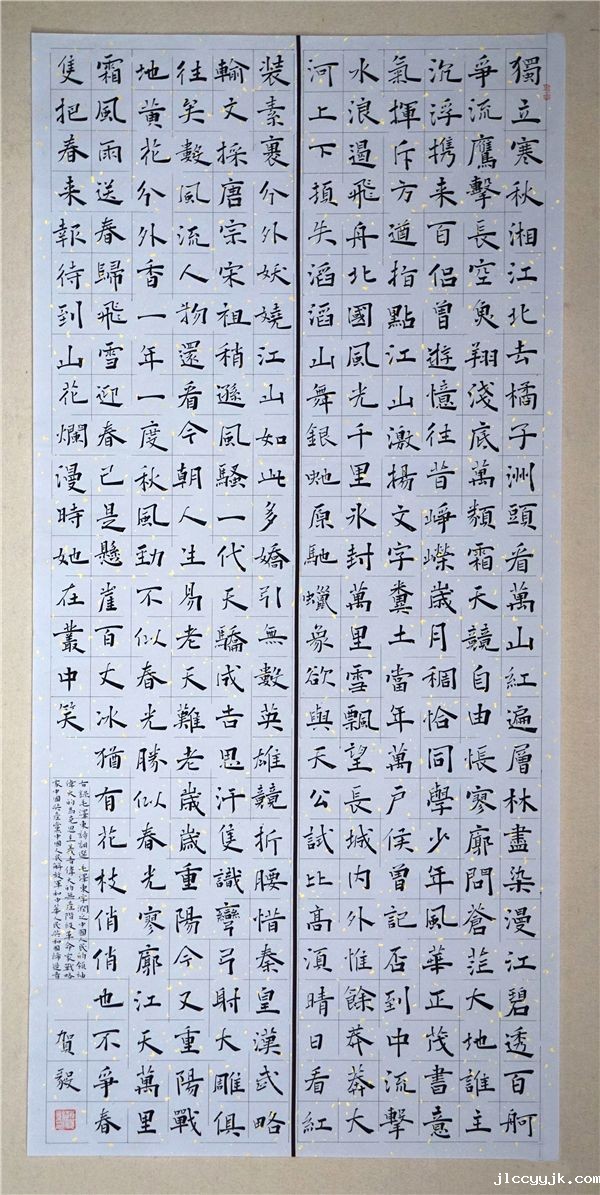 獨立寒秋湘江北去橘子洲頭看萬山紅遍層林盡染漫江碧透百舸
爭流鷹擊長空魚翔淺底萬類霜天競自由悵寥廓問蒼茫大地誰主
沉浮携来百侶曾遊憶往昔崢嶸歲月稠恰同學少年風華正茂書意
氣揮斥方遒指點江山激揚文字糞土當年萬戶侯曾記否到中流擊
水浪遏飛舟北國風光千里氷封萬里雪飄望長城内外惟餘莽莽大
河上下頓失滔滔山舞銀虵原馳蠟象欲與天公試比高須晴日看紅
装素裹分外妖嬈江山如此多嬌引無數英雄競折腰惜秦皇漢武略
輸文採唐宗宋祖稍遜風騷一代天驕成吉思汗隻識彎弓射大雕俱
往矣數風流人物還看今朝人生易老天難老歲歲重陽今又重陽戰
地黃花分外香一年一度秋風勁不似春光勝似春光寥廓江天萬里
霜風雨送春歸飛雪迎春已是懸崖百丈冰猶有花枝俏俏也不爭春
隻把春来報待到山花爛漫時她在叢中笑
右錄毛澤東詩詞選 毛澤東字潤之中國人民的領袖
偉大的馬克思主義者偉大的無產階級革命家戰略
家中國共產黨中國人民解放軍和中華人民共和國締造者
賀毅
jlccyyjk.com